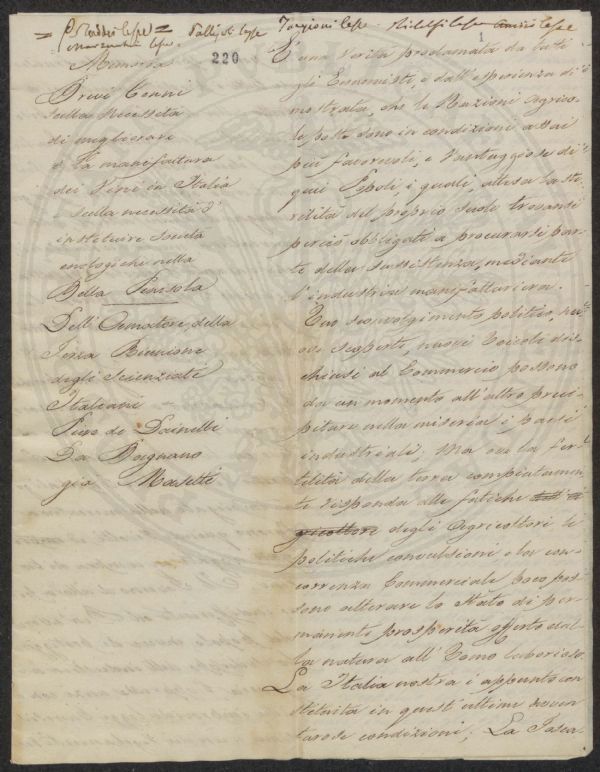 Ridolfi lesse
1
220
Memoria
Brevi Cenni
sulla necessità
di migliorare
la manifattura
dei Vini in Italia
e sulla necessità d'
instituire società
enologiche nella
Bella Penisola
Dell' Amatore della
Terza Riunione
degli Scienziati
Italiani
Piero de Dainelli
Da Bagnano
già Masetti
È una verità proclamata da tutti
gli Economisti, e dall' esperienza di
mostrata, che le Nazioni Agrico
le poste sono in condizioni assai
più favorevoli, e vantaggiose di
quei Popoli, i quali, attesa la ste
rilità del proprio suolo trovansi
perciò obbligati a procurarsi par
te della sussistenza, mediante
l'industria manifatturiera.
Uno sconvolgimento politico, nu
ove scoperte, nuovi Veicoli dis
chiusi al Commercio possono
da un momento all' altro preci
pitare nella miseria i paesi
industriali, Ma ove la fer
tilità della terra compiutamen
te risponda alle fatiche
degli Agricoltori le
politiche convulsioni e la con
correnza Commerciale poco pos
sono alterare lo stato di per
manente prosperità offerto dal
la natura all' Uomo laborioso.
La Italia nostra è appunto con
stituita in queste ultime avven
turose condizioni; La Tosca